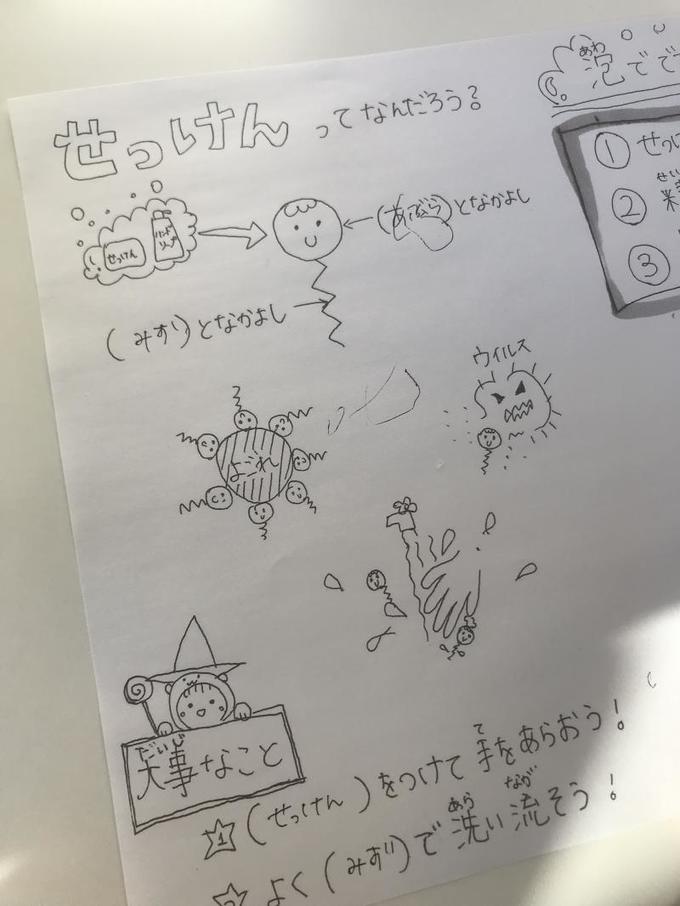 せっけんってなんだろう？
せっけん
ハンドソープ
(あぶら)となかよし
(みず)となかよし
よごれ
ウイルス
だいじ
大事なこと
☆1 (せっけん)をつけて手をあらおう！
て
よく(みず)で洗い流そう！
あら なが
あわ
泡でで
① せっけ
せい
②
③